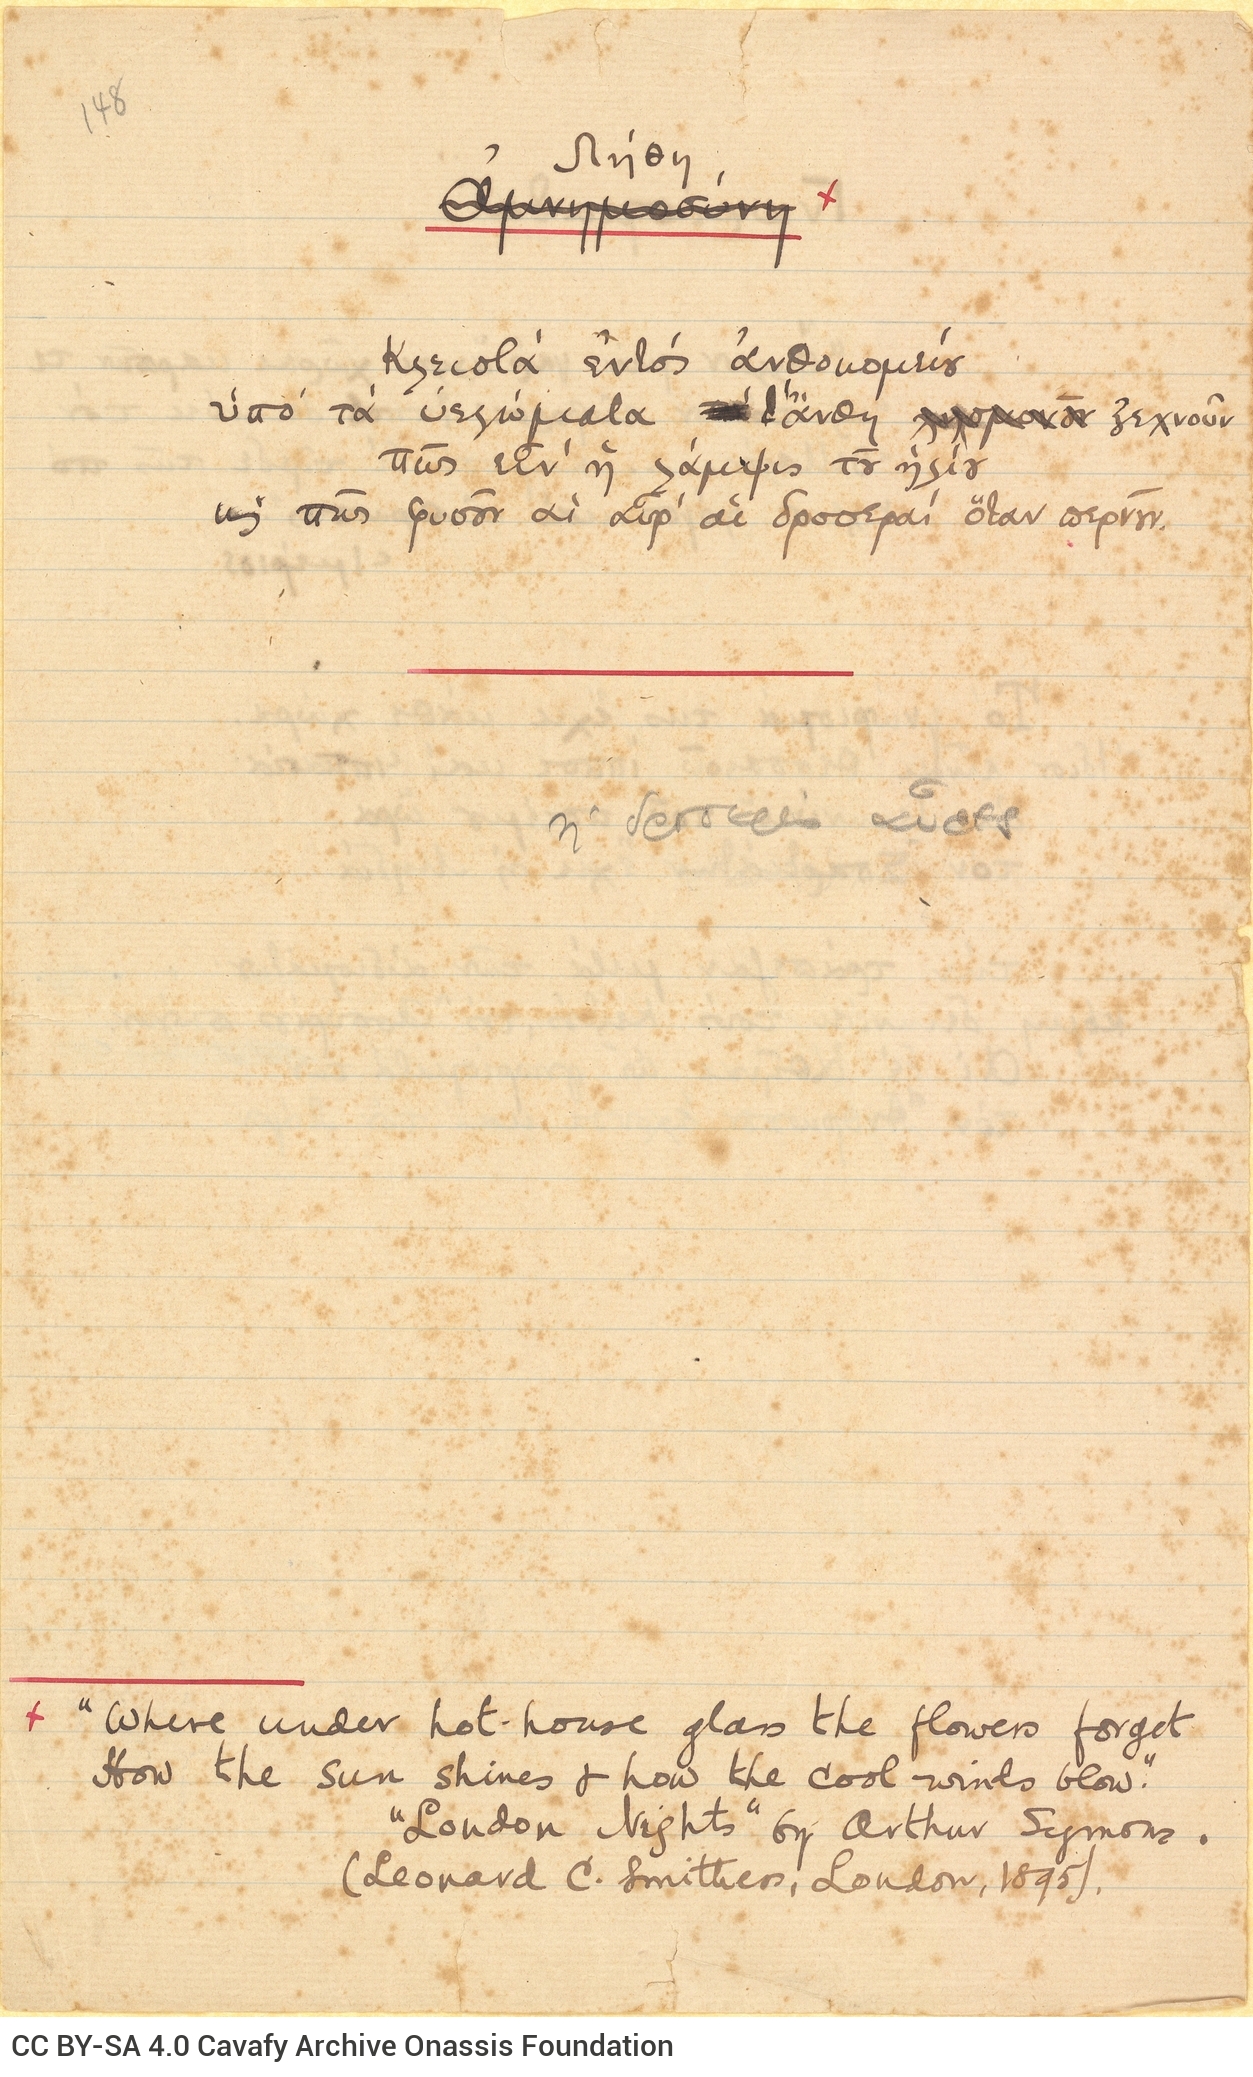 148
Λήθη
Ἀμνημοσύνη +
Κλειστά ἐντός ἀνθοκομείου
ὑπό τά ὑελώματα τ' ἄνθη λησμονοῦν ξεχνοῦν
πῶς εἶν' ἡ λάμψις τοῦ ἡλίου
καί πῶς φυσοῦν αἱ αὖρ' αἱ δροσεραί ὅταν περνοῦν.
ἡ δροσερές αὖρες
+ "Where under hot-house glass the flowers forget
How the sun shines & how the cool winds blow."
"London Nights" by Arthur Symons.
(Leonard C. Smithers, London, 1895).
CC BY-SA 4.0 Cavafy Archive Onassis Foundation